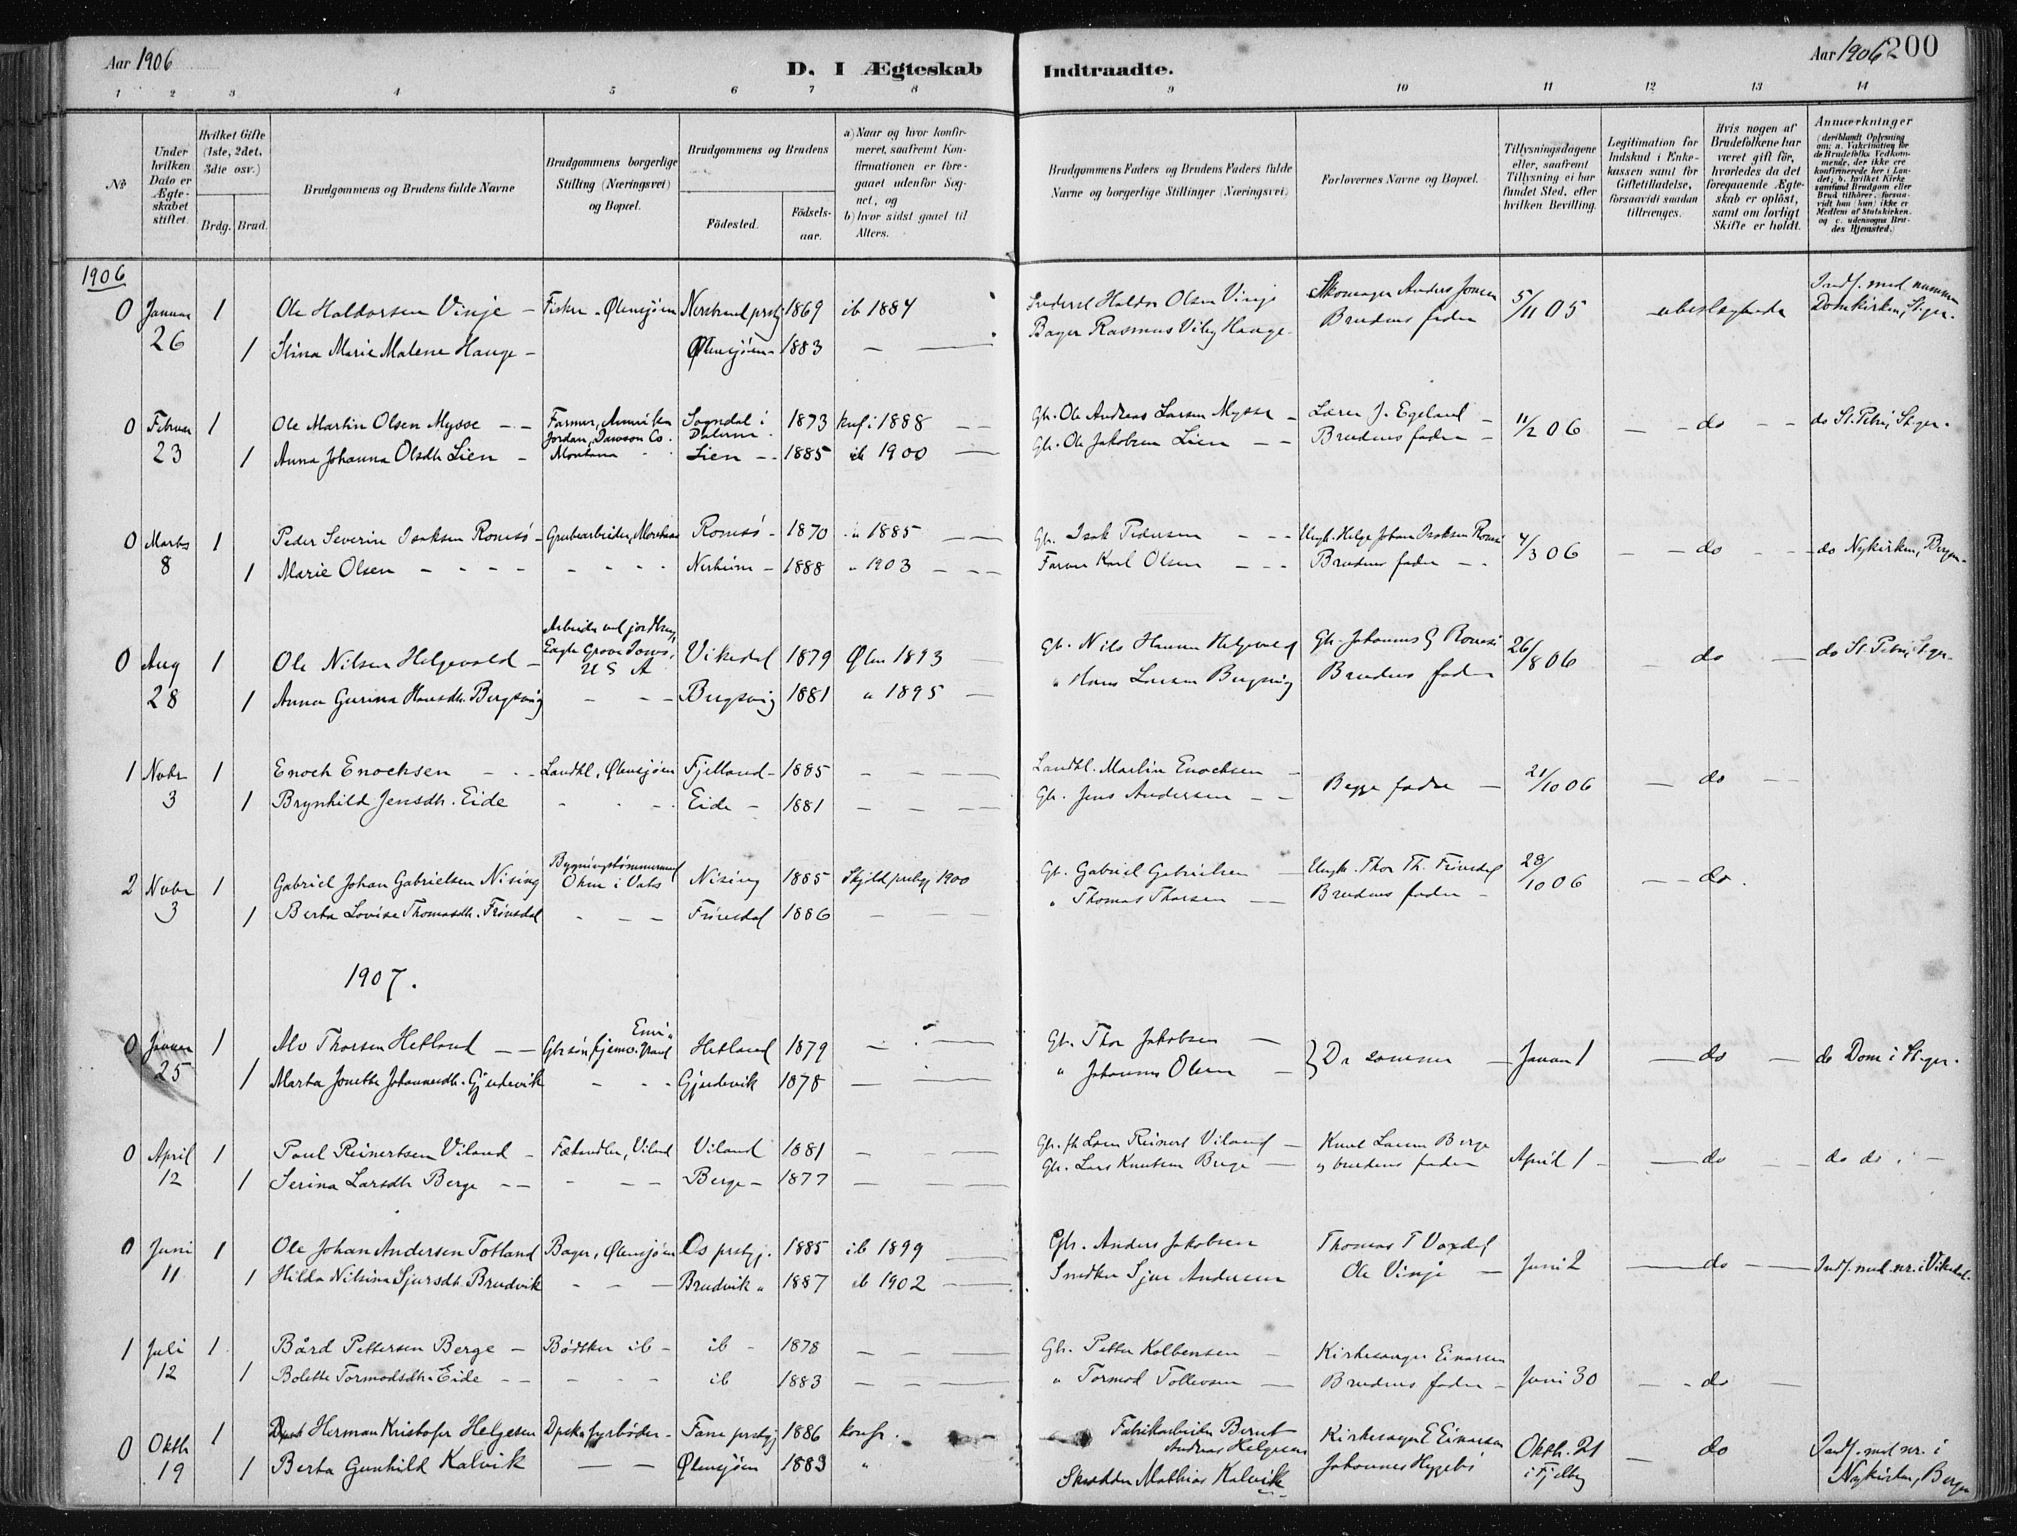 Aar 1906
D. I Ægteskab Indtraadte.
Aar 1906 200
1 2 3 4 5 6 7 8 9 10 11 12 13 14
No
Under hvilken Dato er Ægteskabet stiftet.
Hvilket Gifte (1ste, 2det, 3die osv.)
Brdg. Brud.
Brudgommens og Brudens fulde Navne
Brudgommens borgerlige Stilling (Næringsvei) og Bopæl.
Brudgommens og Brudens
Födested.
Födselsaar.
a) Naar og hvor konfirmeret, saafremt Konfirmationen er foregaaet udenfor Sognet, og
b) hvor sidst gaaet til Alters.
Brudgommens Faders og Brudens Faders fulde Navne og borgerlige Stillinger (Næringsvei)
Forlovernes Navne og Bopæl.
Tillysningsdagene eller, saafremt Tillysning ei har fundet Sted, efter hvilken Bevilling.
Legitimation for Indskud i Enkekassen samt for Giftetilladelse, forsaavidt saadan tiltrenges.
Hvis nogen af Brudefolkene har været gift för, hvorledes da det foregaaende Ægteskab er oplöst, samt om lovligt Skifte er holdt.
Anmærkninger (deriblandt Oplysning om: a. Vakcination for de Brudefolks Vedkommende, der ikke ere konfirmerede her i Landet; b. hvilket Kirkesamfund Brudgom eller Brud tilhörer, forsaavidt han (hun) ikke er Medlem af Statskirken, og c. udensogns Brudes Hjemsted.)
1906
0 Januar 1 Ole Haldorsen Vinje – Fisker, Ølensjøen Nerstrand prstgj 1869 ib 1884 Haldor Olsen Vinje Skomager Anders Jonsen 5/11 05 ubeslægtede Indf. med nummer
26 1 Stina Marie Malene Hauge – Ølensjøen – 1883 — Bager Rasmus Viby Hauge Brudens fader Domkirken, St.ger.
0 Februar 1 Ole Martin Olsen Mysse – Farmer, Amerika Sogndal i 1873 konf i 1888 Gbr. Ole Andreas Larsen Mysse – Lærer J. Egeland – 11/2 06 do do St. Petri, St.ger.
Jordan, Dawson Co. Dalerne
23 1 Anna Johanna Olsdtr. Lien – Montana Lien – 1885 ib 1900 Gbr. Ole Jakobsen Lien Brudens fader –
0 Marts 1 Peder Severin Isaksen Romsø – Grubearbeider, Montana Romsø – 1870 " 1885 Gbr. Isak Pedersen Ungk. Helge Johan Isaksen Romsø 4/3 06 do do Nykirken, Bergen
8 1 Marie Olsen Nerheim – 1888 " 1903 Farver Karl Olsen Brudens fader
Arbeider ved jordbrug,
0 Aug 1 Ole Nilsen Helgevold – Eagle Grove Iowa, Vikedal 1879 Ølen 1893 Gbr. Nils Hansen Helgevold Gbr. Johannes G Romsø 26/8 06 do do St. Petri, St.ger
U S A
28 1 Anna Gurina Hansdtr. Bergsvig – Bergsvig 1881 " 1895 " Hans Larsen Bergsvig Brudens fader
1 Novbr 1 Enoch Enochsen Landhl, Ølensjøen Fjelland – 1885 Landhl. Martin Enochsen Begge fædre 21/10 06 do
3 1 Brynhild Jensdtr. Eide Eide – 1881 Gbr. Jens Andersen
2 Novbr 1 Gabriel Johan Gabrielsen Nising Bygningstømmermand Nising 1885 Skjold prstgj 1900 Gb. Gabriel Gabrielsen Ungk. Thor Th. Frövsdal 28/10 06 do.
Ølen i Vats
3 1 Berta Lovise Thomasdtr. Frövsdal Frövsdal 1886 " Thomas Thorsen Brudens fader –
1907.
0 Januar 1 Alv Thorsen Hetland Gbr.søn hjemv. Hetland 1879 Gbr. Thor Jakobsen – } De samme Januar 1 do do Dom i St.ger.
25 1 Marta Jonette Johannesdtr. Gjerdevik Gjerdevik 1878 " Johannes Olsen –
0 April 1 Paul Reinertsen Viland – Fæhandler, Viland Viland 1881 Gbr. Reinert Viland Knut Larsen Berge April 1 do do do
12 1 Serina Larsdtr Berge Berge – 1877 Gbr. Lars Knutsen Berge og brudens fader
0 Juni 1 Ole Johan Andersen Totland Bager, Ølensjøen Os prstgj. 1885 ib 1899 Gbr. Anders Jakobsen Thomas T Vaxdal Juni 2 do Indf. med nr. i Vikedal
11 1 Hilda Nilsina Sjursdtr Brudvik Brudvik " 1887 ib 1902 Snedker Sjur Andersen Ole Vinje
1 Juli 1 Bård Pettersen Berge – Bødker ib – ib – 1878 Gbr. Petter Kolbensen Kirkesanger Einarsen Juni 30 do
12 1 Bolette Tormodsdtr. Eide ib 1883 " Tormod Tollevsen Brudens fader
0 Oktbr 1 Herman Kristofer Helgesen Dpskfyrbøder – Fane prstgj 1886 konfr. Fabrikarbeider Bernt Andreas Helgesen Kirkesanger E Einarsen Oktbr. 21 do Indf. med nr. i
19 1 Berta Gunhild Kalvik Ølensjøen 1883 " Skrædder Mathias Kalvik Johannes Hyggebø i Fjelberg Nykirken, Bergen